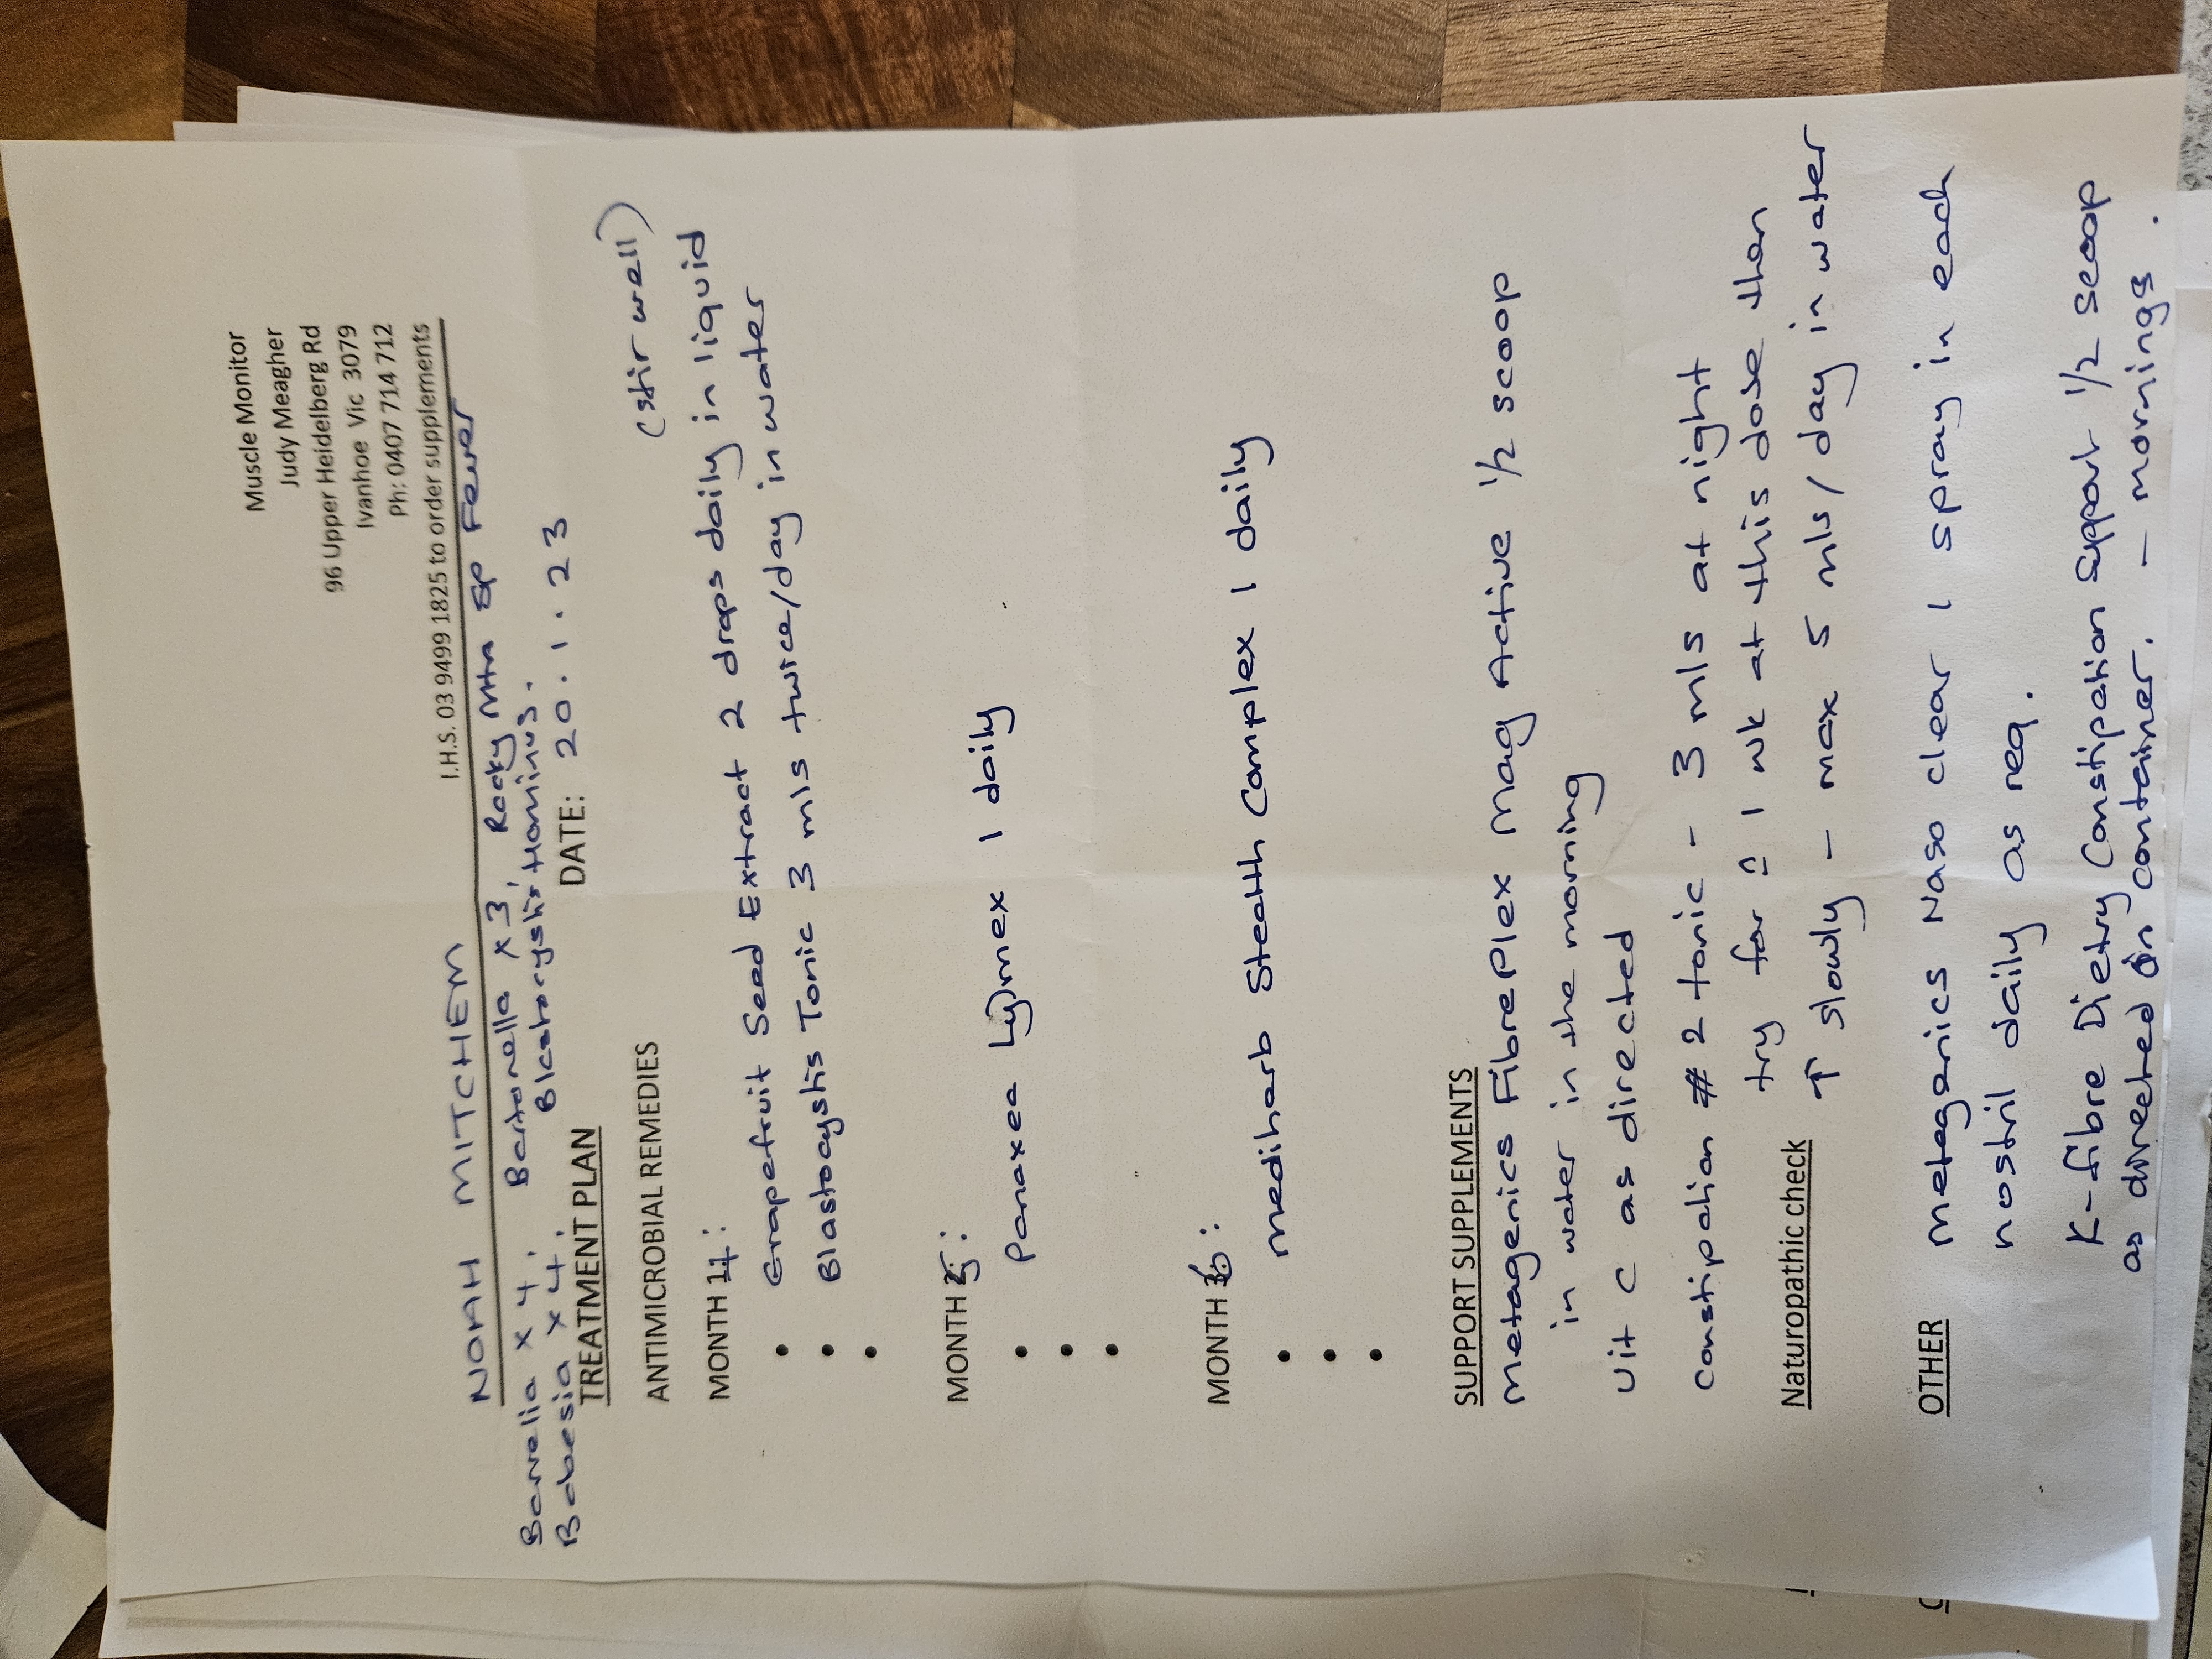 Muscle Monitor
Judy Meagher
96 Upper Heidelberg Rd
Ivanhoe Vic 3079
Ph: 0407 714 712
I.H.S. 03 9499 1825 to order supplements
NOAH MITCHEM
Borrelia x 4, Bartonella x 3, Rocky Mtn Sp Fever
Babesia x 4, Blastocystis Hominus.
TREATMENT PLAN DATE: 20.1.23
ANTIMICROBIAL REMEDIES (stir well)
MONTH 4:
• Grapefruit Seed Extract 2 drops daily in liquid
• Blastocystis Tonic 3 mls twice/day in water
•
MONTH 5:
• Panaxea Lymex 1 daily
•
•
MONTH 6:
• mediherb Stealth Complex 1 daily
•
•
SUPPORT SUPPLEMENTS
Metagenics FibrePlex Mag Active 1/2 scoop
in water in the morning
Vit C as directed
constipation # 2 tonic - 3 mls at night
try for 1 wk at this dose then
Naturopathic check ↑ slowly - max 5 mls/day in water
OTHER metagenics Naso clear 1 spray in each
nostril daily as req.
K-fibre Dietry Constipation Support 1/2 scoop
as directed on container. - mornings.